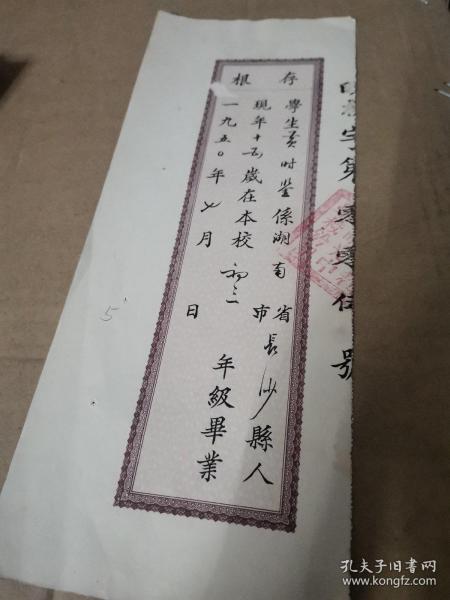 存根
學生黃时鉴係湖南省市長沙縣人
現年十五歲在本校初三年級畢業
一九五〇年七月日
字第零零伍號
5
孔夫子旧书网
www.kongfz.com